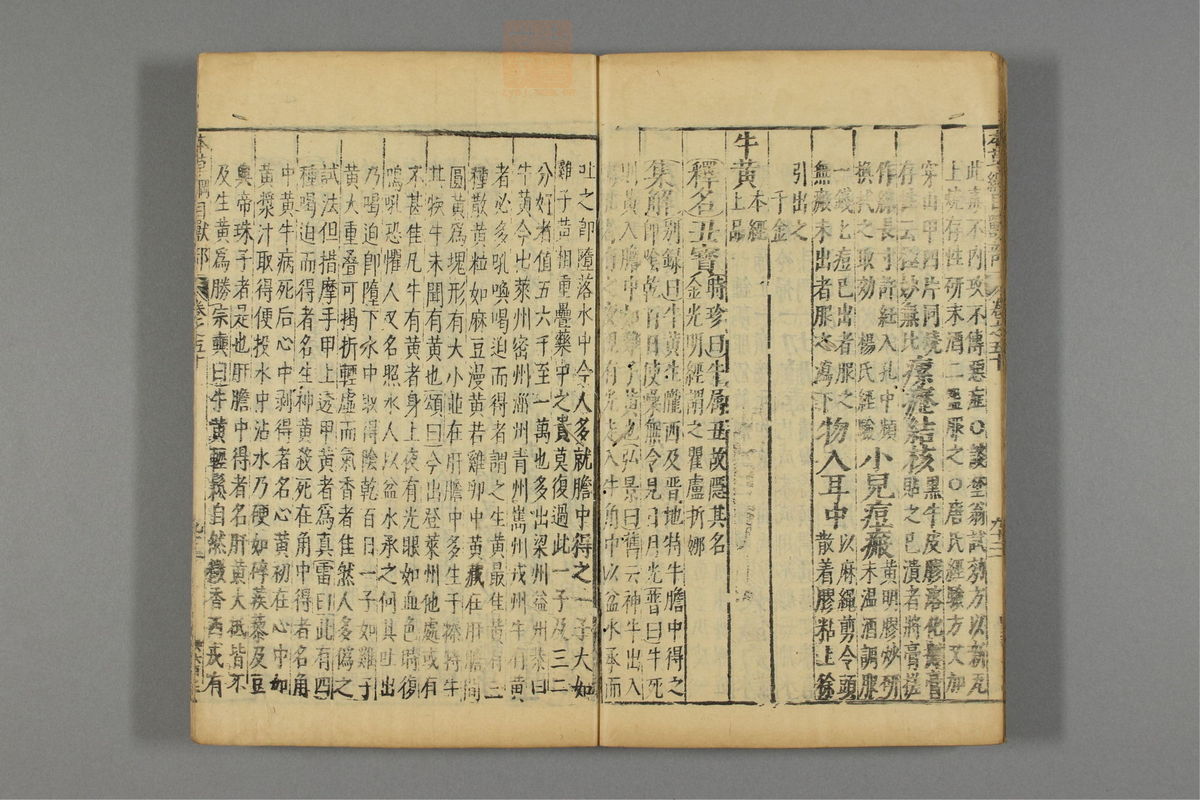 此毒不內攻不傳惡症○談埜翁試效方以新瓦
上燒存性研末酒二盞服之○唐氏經驗方又加
穿山甲四片同燒
存性云極妙無比瘰癧結核黑牛皮膠溶化攤膏
貼之已潰者將膏搓
作線長寸許紝入孔中頻
換拭之取效 楊氏經驗小兒痘瘢黃明膠炒研
末溫酒調服
一錢匕痘已出者服之
無瘢未出者服之瀉下物入耳中以麻繩剪令頭
散着膠粘上徐
引出之
千金
牛黃本經
上品
釋名丑寶時珍曰牛屬丑故隱其名
金光明經謂之瞿盧折娜
集解別錄曰牛黃生隴西及晉地特牛膽中得之
即陰乾百日使燥無令見日月光普曰牛死
則黃入膽中如雞子黃也弘景曰舊云神牛出入
吐之即墮落水中今人多就膽中得之一子大如
雞子黃相重疊藥中之貴莫復過此一子及三二
分好者值五六千至一萬也多出梁州益州恭曰
牛黃今出萊州密州淄州青州嶲州戎州牛有黃
者必多吼喚喝迫而得者謂之生黃最佳黃有三
種散黃粒如麻豆漫黃若雞卵中黃藏在肝膽間
圓黃爲塊形有大小並在肝膽中多生于𤛑特牛
其牸牛未聞有黃也頌曰今出登萊州他處或有
不甚佳凡牛有黃者身上夜有光眼如血色時復
鳴吼恐懼人又名照水人以盆水承之伺其吐出
乃喝迫即墮下水中取得陰乾百日一子如雞子
黃大重疊可揭折輕虛而氣香者佳然人多僞之
試法但揩摩手甲上透甲黃者爲真雷曰此有四
種喝迫而得者名生神黃殺死在角中得者名角
中黃牛病死后心中剥得者名心黃初在心中如
黃漿汁取得便投水中沾水乃硬如碎蒺藜及豆
與帝珠子者是也肝膽中得者名肝黃大抵皆不
及生黃爲勝宗奭曰牛黃輕鬆自然微香西戎有
本草綱目獸部 卷之五十